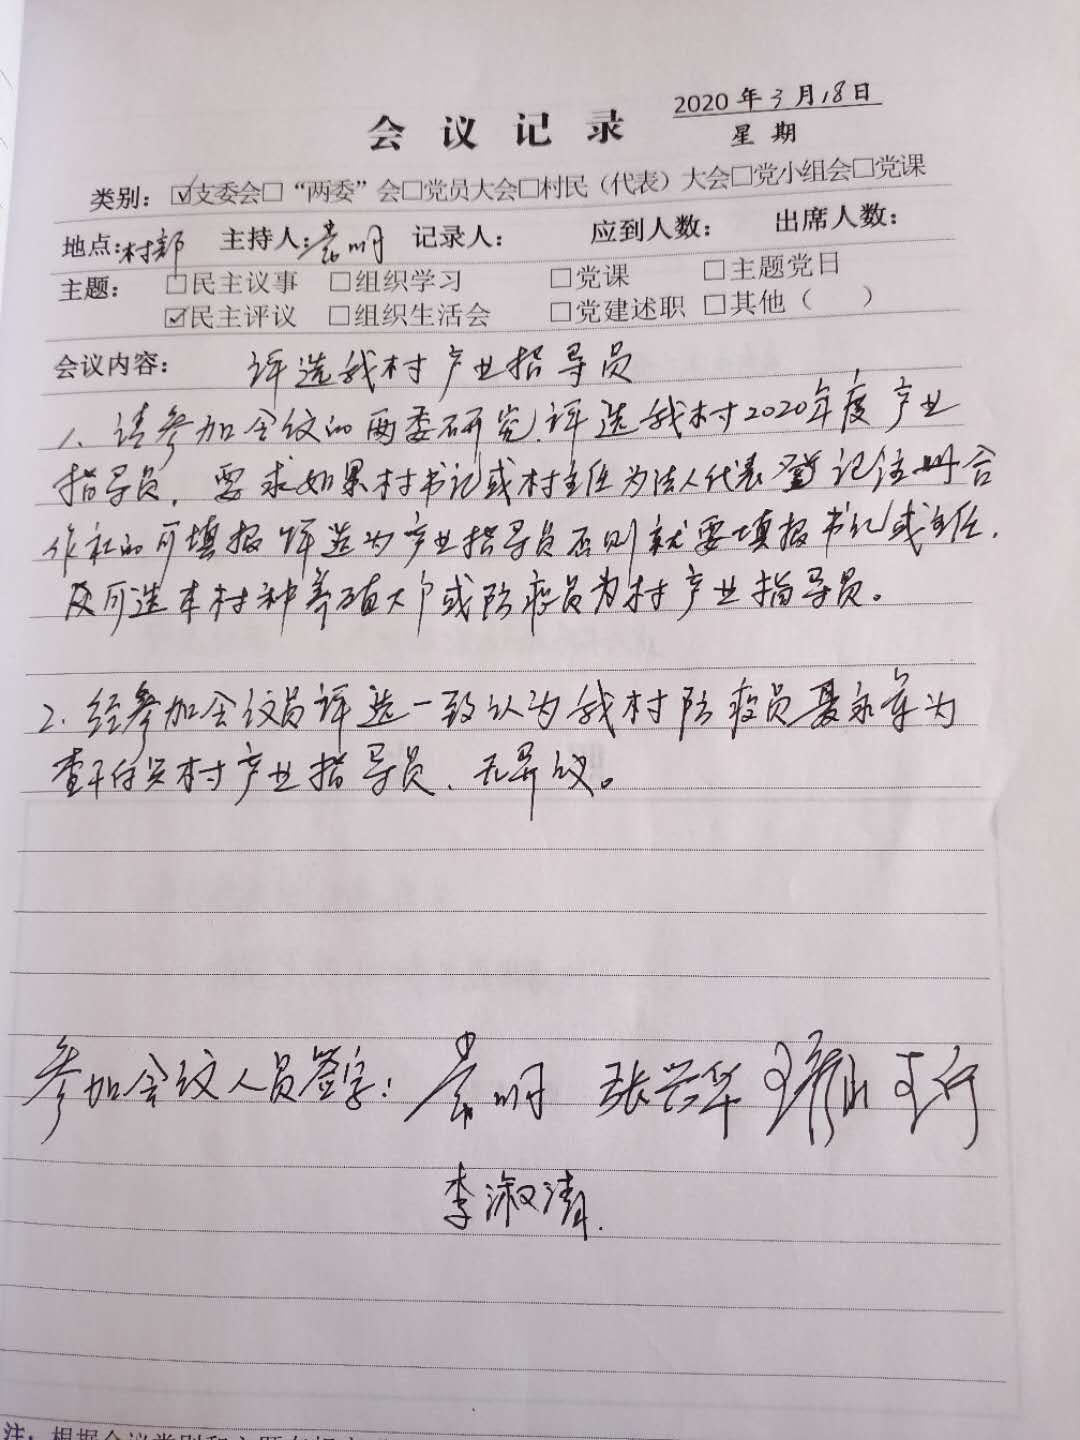 会议记录
2020年3月18日
星期
类别：☑支委会□“两委”会□党员大会□村民（代表）大会□党小组会□党课
地点：村部 主持人： 明 记录人： 应到人数： 出席人数：
主题： □民主议事 □组织学习 □党课 □主题党日
☑民主评议 □组织生活会 □党建述职 □其他（ ）
会议内容： 评选我村产业指导员
1、请参加会议的两委研究、评选我村2020年度产业
指导员，要求如果村书记或村主任为法人代表登记注册合
作社的可填报评选为产业指导员否则就要填报书记或主任，
及可选本村种养殖大户或防疫员为村产业指导员。
2.经参加会议员评选一致认为我村防疫员聂永军为
查干 村产业指导员、无异议。
参加会议人员签字： 明 张兴华 王
李淑清.
注：根据会议类别和主题在相应